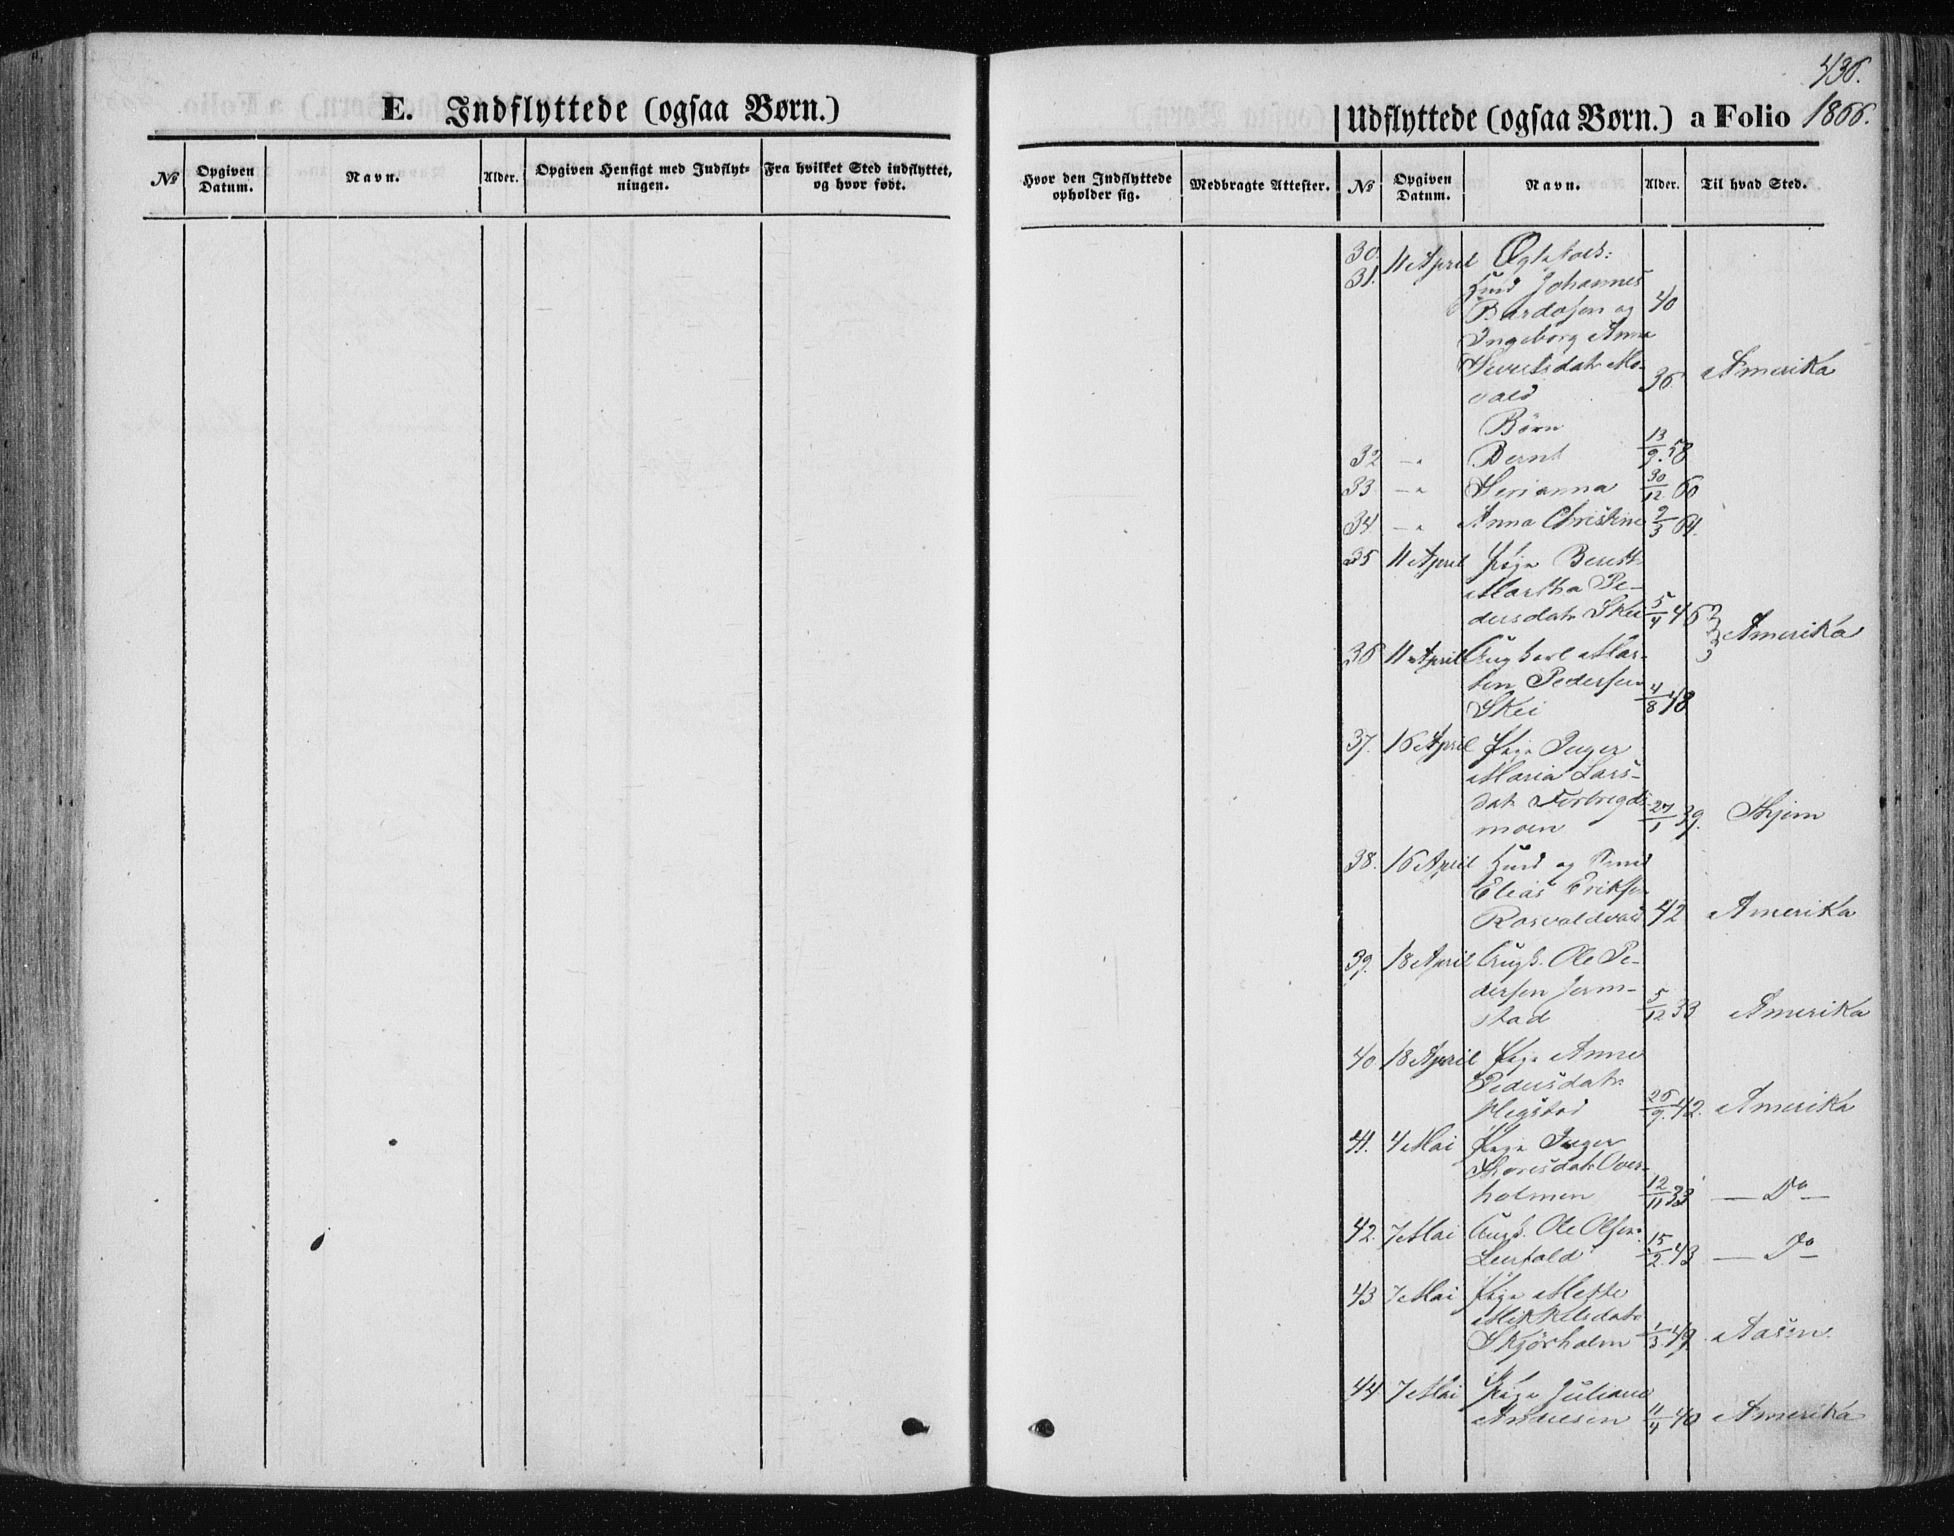 436.
E. Indflyttede (ogsaa Børn.)
Udflyttede (ogsaa Børn.) a Folio 1866.
№ Opgiven Datum. Navn. Alder. Opgiven Hensigt med Indflytningen. Fra hvilket Sted indflyttet, og hvor født.
Hvor den Indflyttede opholder sig. Medbragte Attester. № Opgiven Datum. Navn. Alder. Til hvad Sted.
30. 11 April Ægtefolk:
31. Huusmd Johannes
Bardosen og 40
Ingeborg Anna
Sivertsdatr Mo- 36 Amerika
vald
Børn
32 — " Bernt 13/9. 58
33 — " Serianna 30/12 60
34 — " Anna Christine 9/3 64.
35 11 April Pige Bereth
Martha Pe-
dersdatr Skei 5/4 46 Amerika
36 11 April Ungkarl Mar-
ten Pedersen
Skei 4/8 48
37. 16 April Pige Inger
Maria Lars-
datr Forbregds-
moen 27/1 39. Skjem
38. 16 April og
Elias Eriksen
42 Amerika
39. 18 April Ungk. Ole Pe-
dersen Jerm-
stad 5/12 33 Amerika
40 18 April Pige Anne
Pedersdatr
Megstad 26/9. 42. Amerika
41. 4 Mai Pige Inger
Thoresdatr Over-
holmen 12/11 33 — Do —
42. 7 Mai Ungk. Ole Olsen
Leerfald 15/2 43 — Do —
43 7 Mai Pige Mette
Mikkelsdatr
Skjørholm 1/3 49. Aasen.
44 7 Mai Pige Juliane
Andersen 11/4 40 Amerika